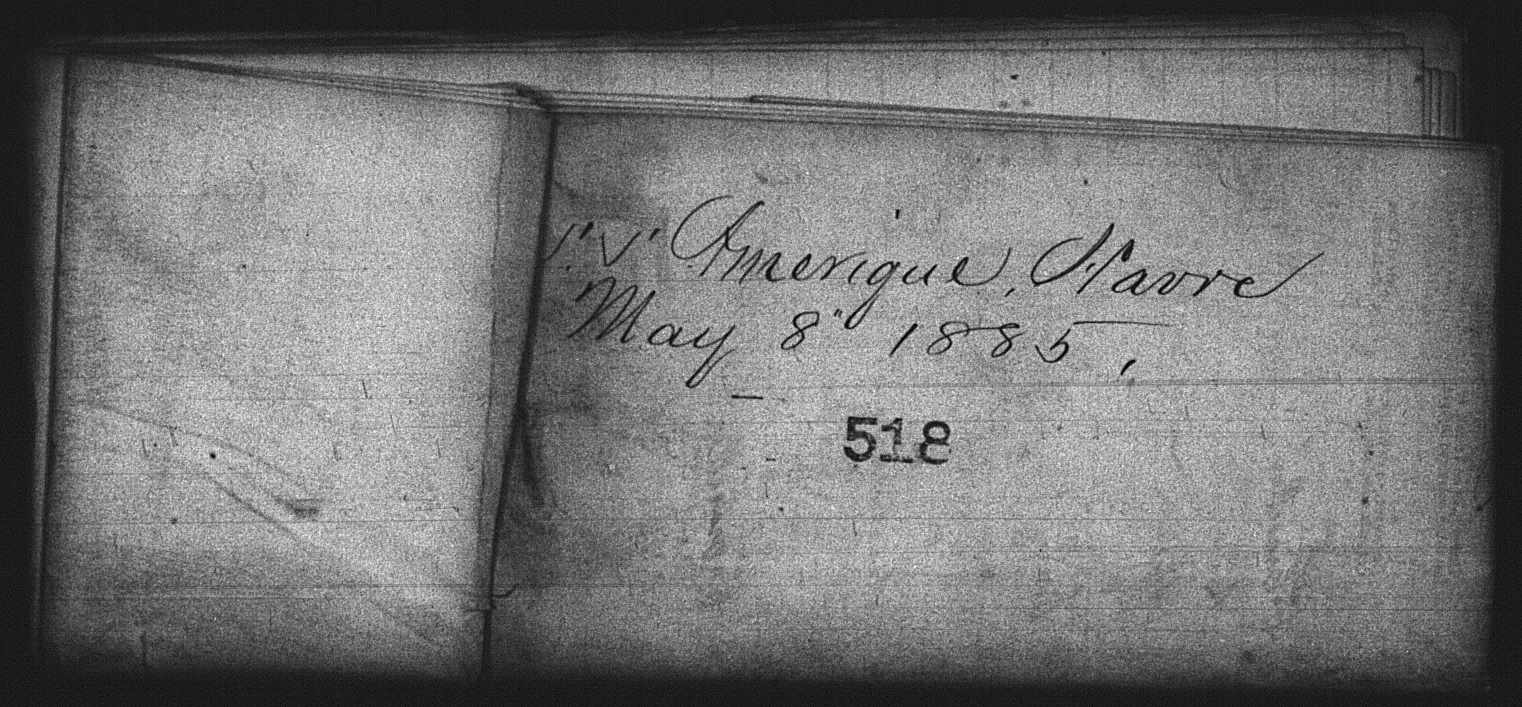 S.S. Amerique, Havre
May 8" 1885,
518